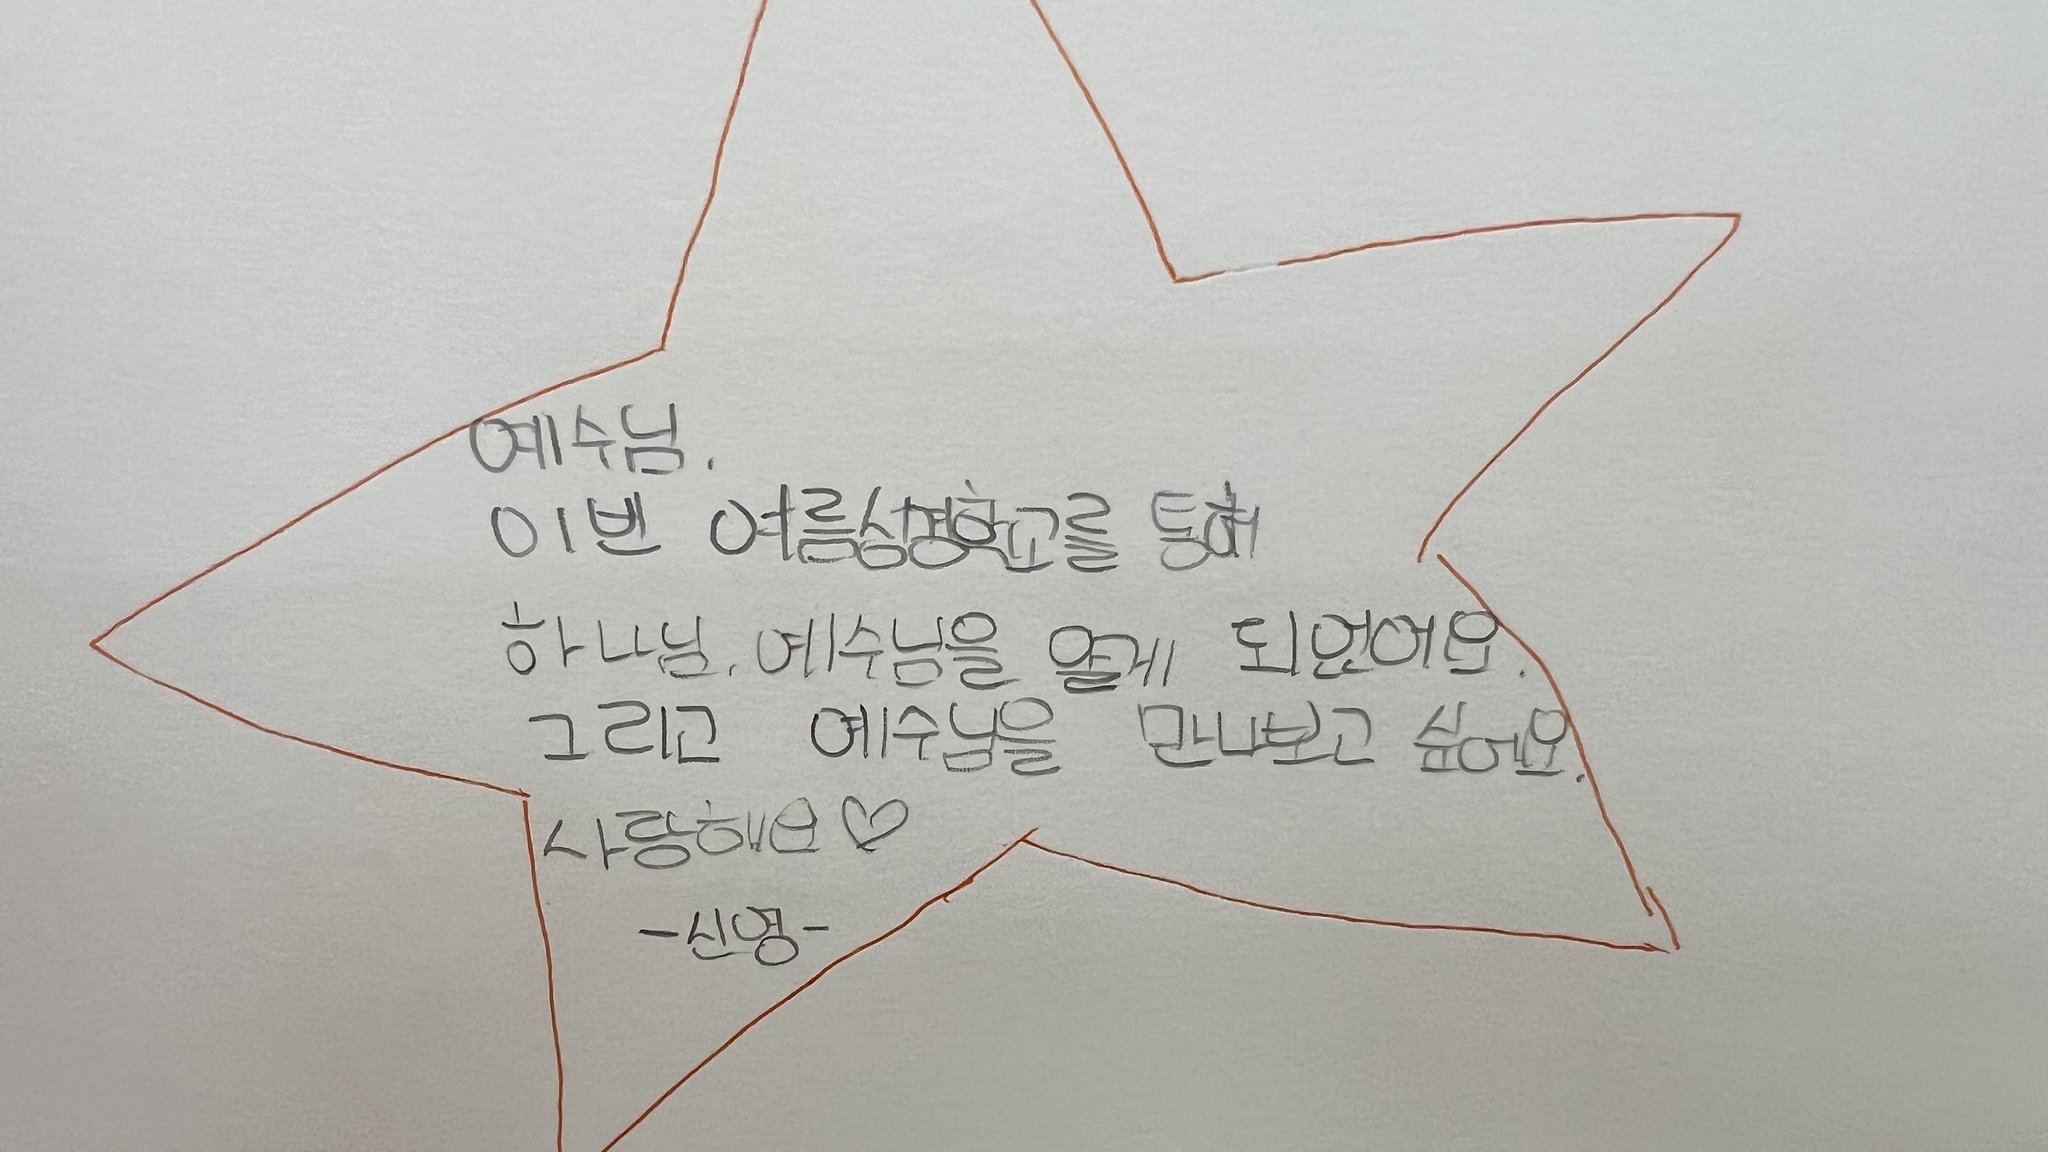 예수님.
이번 여름성경학교를 통해
하나님. 예수님을 알게 되언어요.
그리고 예수님을 만나보고 싶어요.
사랑해요♡
-신영-